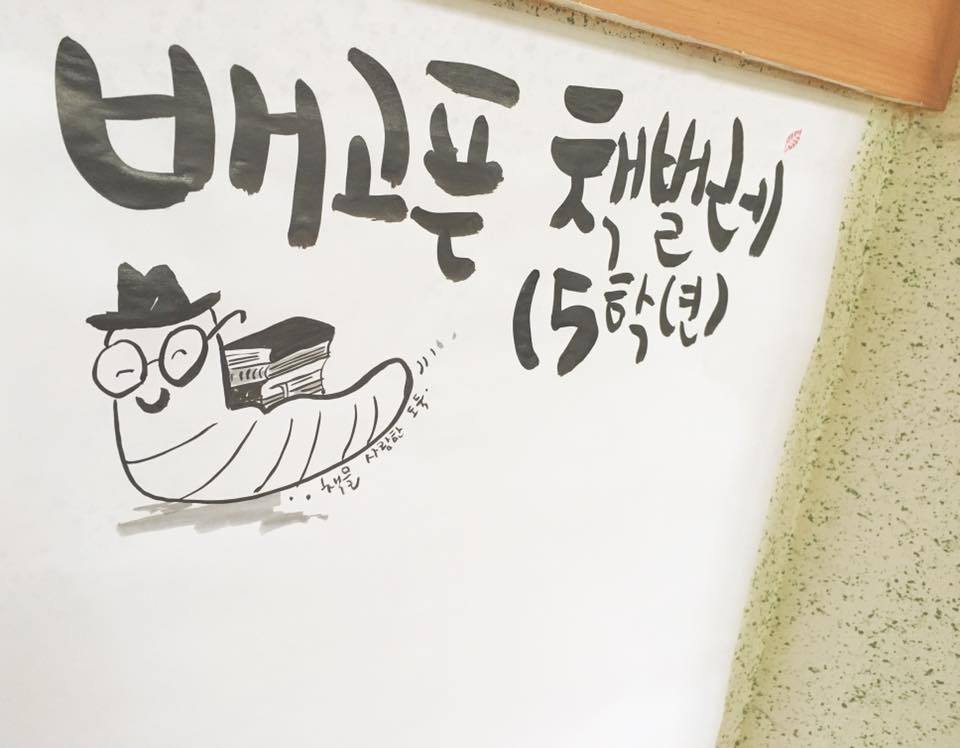 배고픈 책벌레
(5학년)
책을 사랑한 도둑